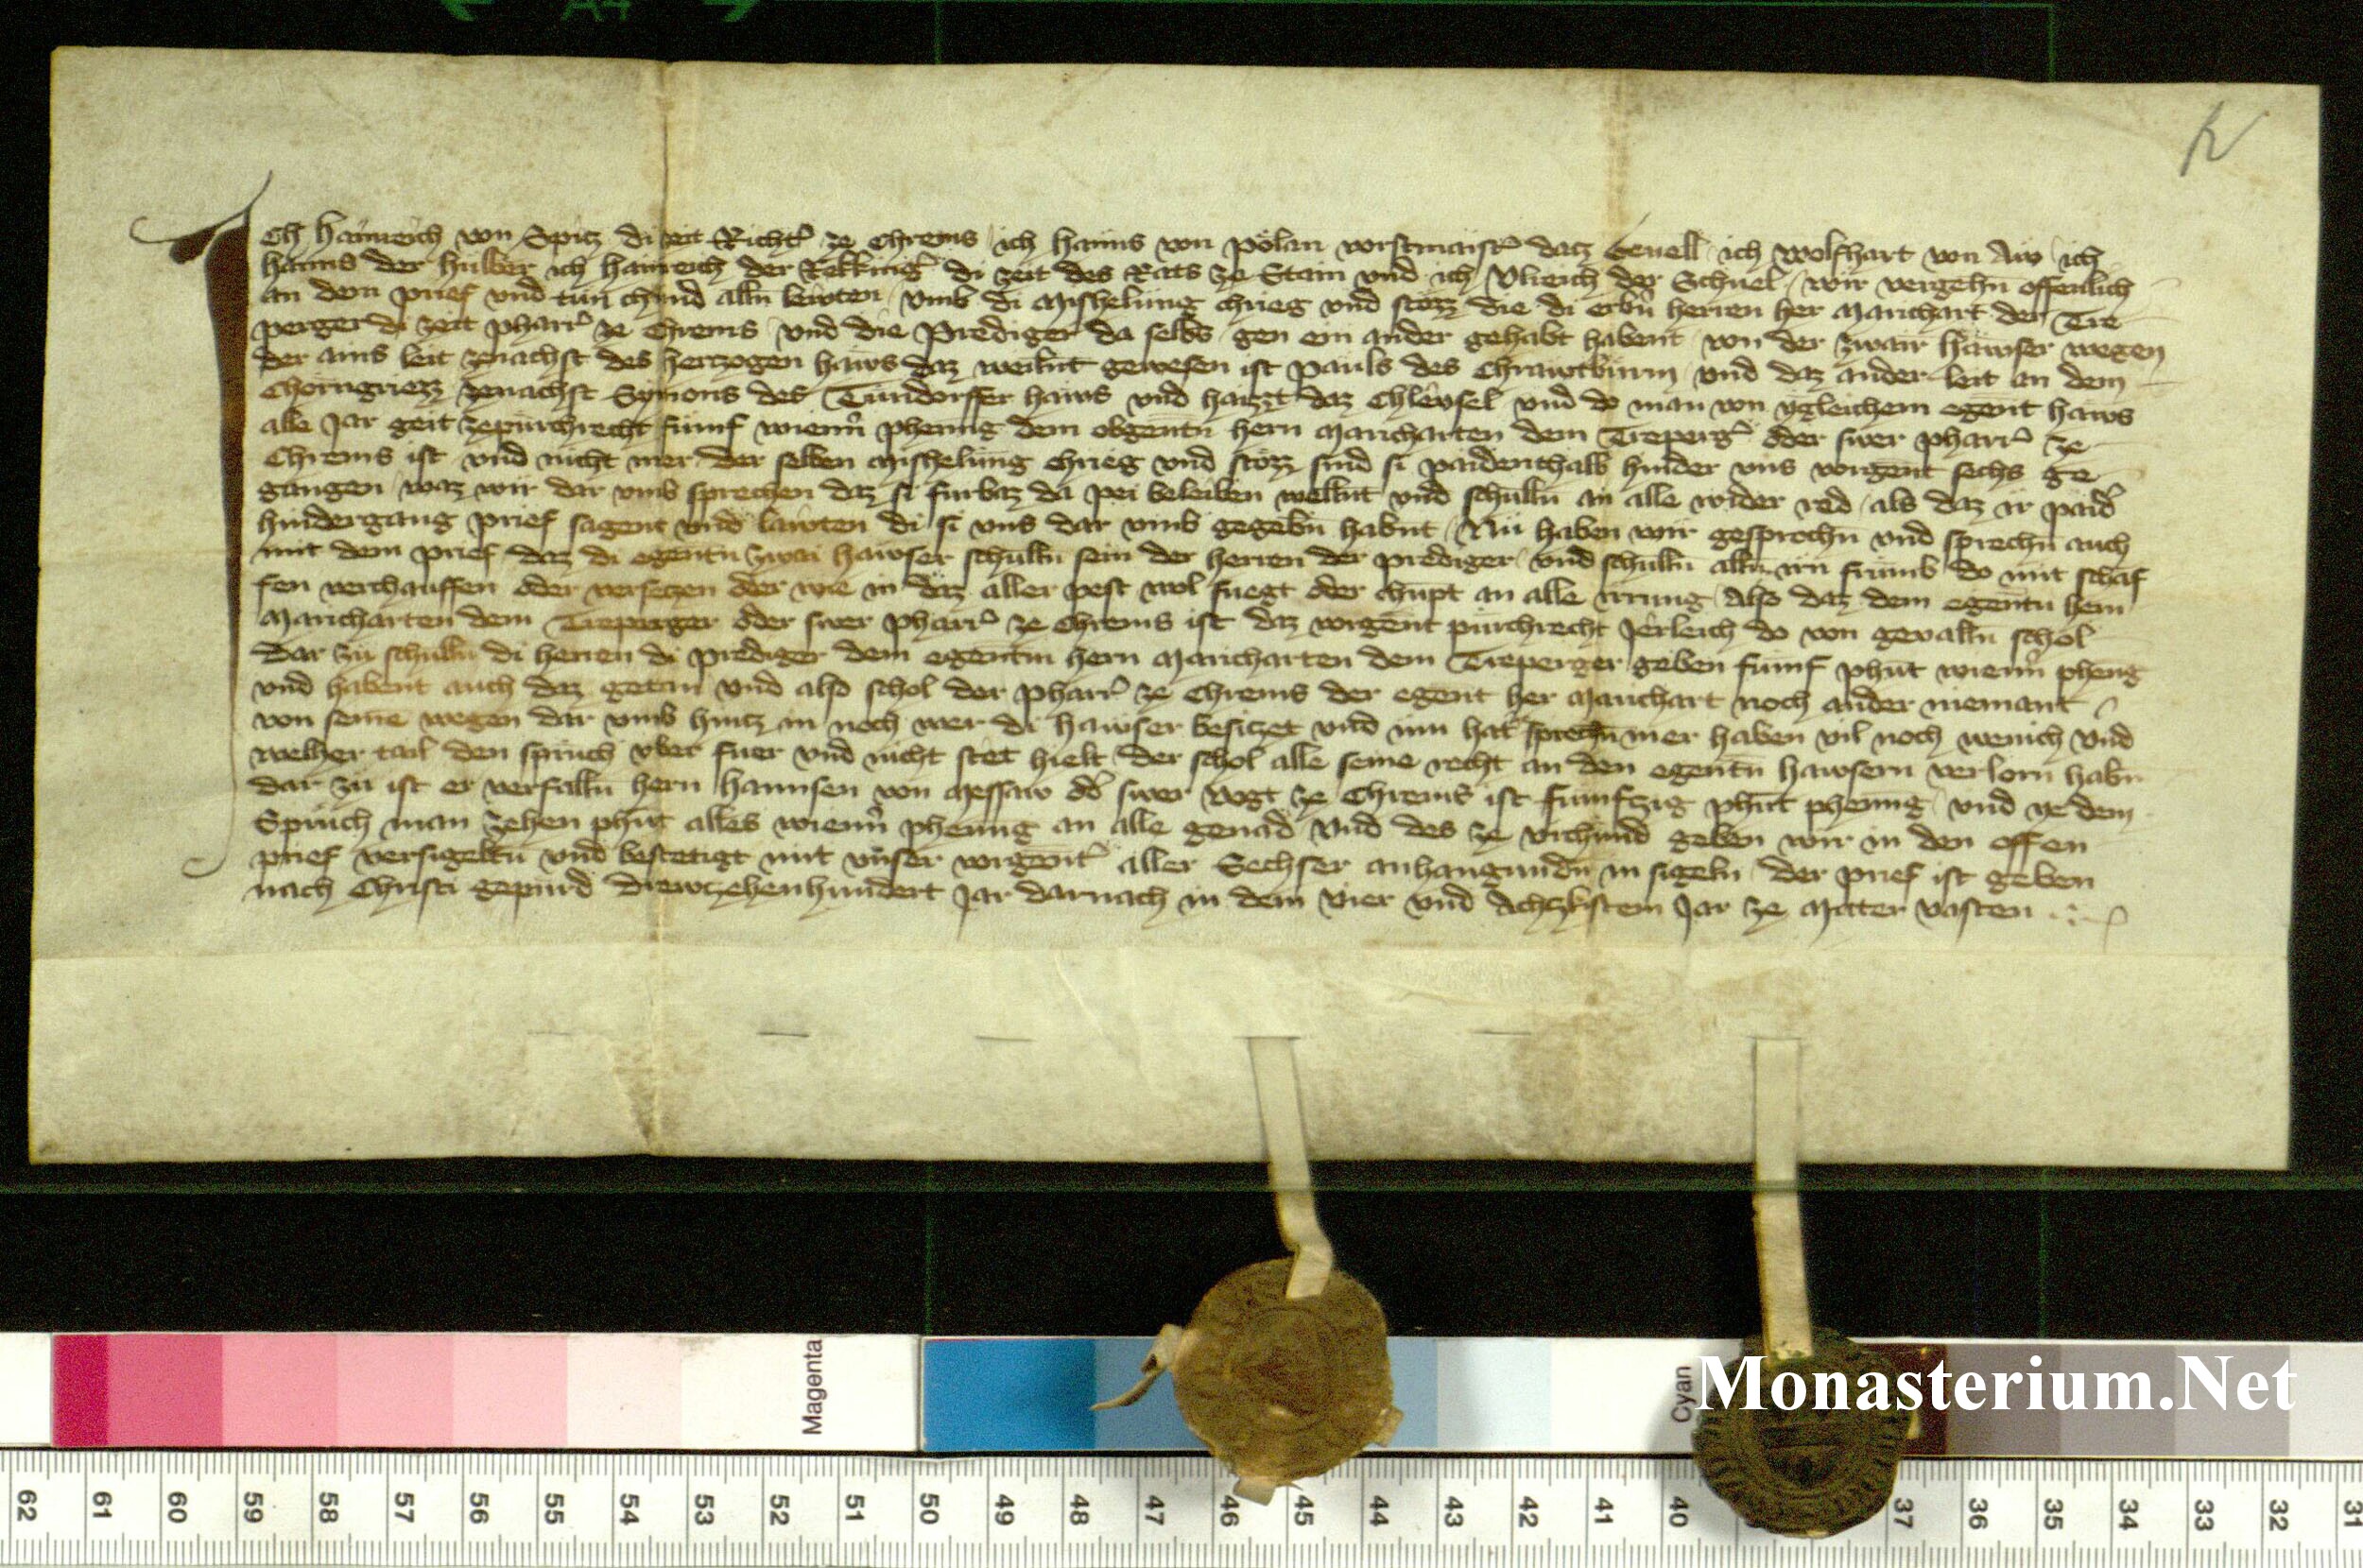 Ich Hainreich von Spicz di zeit Richt' ze Chrems ich Hanns von Pölan vorstmaist' dacz Geuell ich Wolfhart von Aw ich
Hanns der Hülber ich Hainreich der Rekking' di zeit des Rats ze Stain vnd ich Vlreich der Schuel wir vergehn offenlich
an dem prief vnd tün chund alln lewten vmb di Mishelüng chrieg vnd stözz die di erbn herren her Marichart der Tre
perger di zeit pharr' ze Chrems vnd die Prediger da selbs gen ein ander gehabt habent von der zwair häwser wegen
der ains leit zenachst des herczogen haws daz weilnt gewesen ist Pauls des Chrawtbürm vnd daz ander leit an dem
Chorngriezz zenachst Symons des Tundorffer haws vnd haizzt daz Chlewsel vnd do man von ygleichem egent haws
alle Jar geit zepürchrecht fümf wienn' phening dem obgentn hern Maricharten dem Treperg' oder swer pharr' ze
Chrems ist vnd nicht mer der selben Mishelüng chrieg vnd stözz sind si paidenthalb hinder vns vorgent sechs ge
gangen waz wir dar vmb sprechen daz si fürbaz da pei beleiben wellnt vnd schulln an alle wider red als daz ir paid'
hindergang prief sagent vnd lawten di si vns dar vmb gegebn habnt Nu haben wir gesprochn vnd sprechn auch
mit dem prief daz di egentn zwai hawser schulln sein der herren der prediger vnd schulln alln irn frumb do mit schaf
fen verchauffen oder verseczen oder wie in daz aller pest wol fuegt oder chumpt an alle irrung Also daz dem egentn hern
Maricharten dem Treperger oder swer pharr' ze Chrems ist daz vorgent purchrecht Jerleich do von gevalln schol
Dar zu schulln di herren di prediger dem egentn hern Maricharten dem Treperger geben fümf phunt wienn' pheng
vnd habent auch daz getan vnd also schol der pharr' ze Chrems der egent her Marichart noch ander niemant
von seinē wegen dar vmb hincz in noch wer di hawser besiczet vnd inn hat sprechn mer haben vil noch wenich Vnd
welher tail den spruch vber fuer vnd nicht stet hielt der schol alle seine recht an den egentn hawsern verlorn habn
dar zu ist er verfalln hern Hannsen von Messaw od' swer vogt ze Chrems ist fumfzig phunt phening vnd ye dem
Spruch man zehen phunt alles wienn' phening an alle genad Vnd des ze vrchund geben wir in den offen
prief versigeltn vnd bestetigt mit vnser vorgent' aller Sechser anhangundn in sigeln der prief ist geben
nach Christi gepurd Drewczehenhundert Jar darnach in dem Vier vnd Achczkistem Jar ze Mitter vasten
Magenta
Cyan
Monasterium.Net
62 61 60 59 58 57 56 55 54 53 52 51 50 49 48 47 46 45 44 43 42 41 40 37 36 35 34 33 32 31
A4